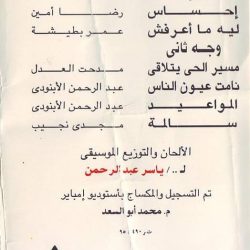 إحساس رضا أمين
ليه ما أعرفش عمر بطيشة
وجه ثانى
مسير الحى يتلاقى مدحت العدل
نامت عيون الناس عبد الرحمن الأبنودى
المواعيد عبد الرحمن الأبنودى
سالمة مجدى نجيب
الألحان والتوزيع الموسيقى
لـ .. / ياسر عبد الرحمن
تم التسجيل والمكساج بأستوديو إمباير
م. محمد أبو السعد